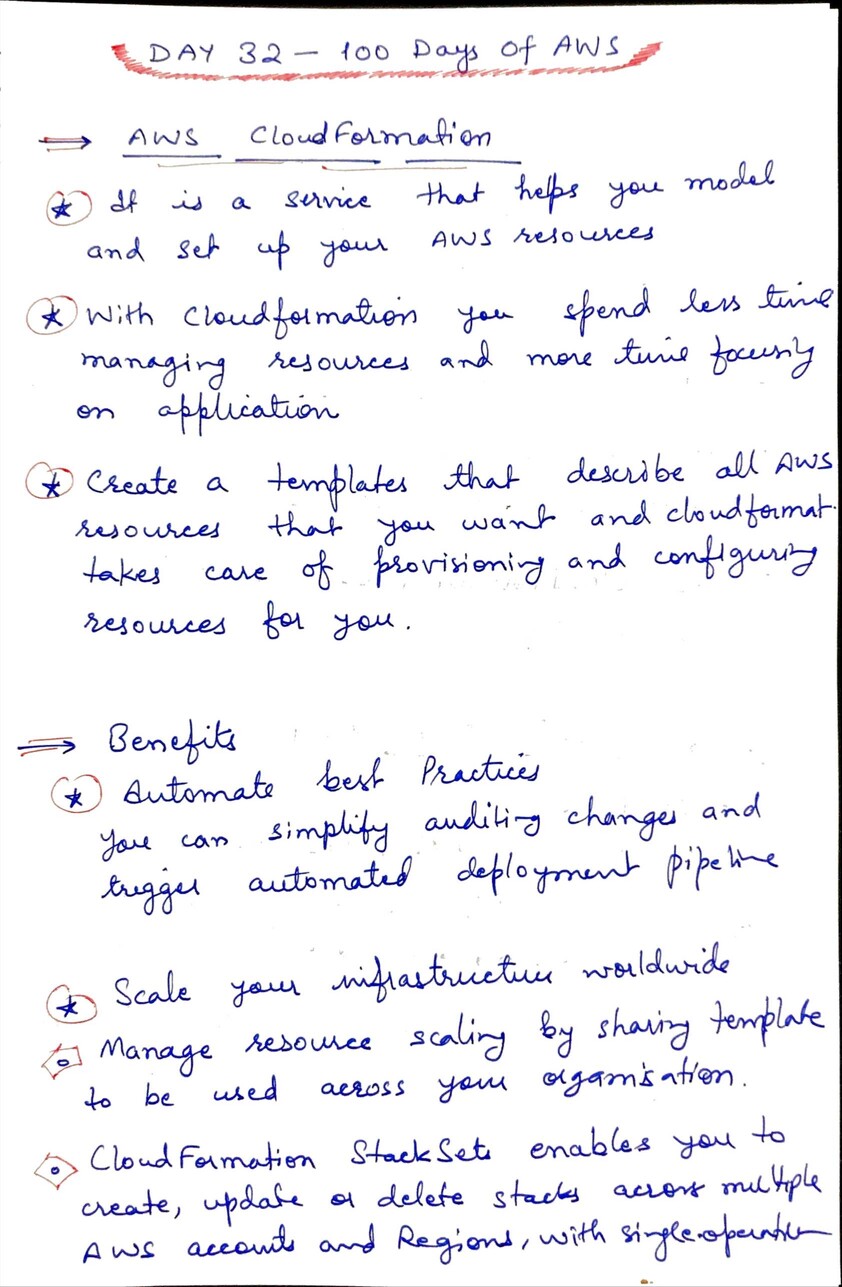 DAY 32 – 100 Days of AWS
⇒ AWS CloudFormation
★ It is a service that helps you model
and set up your AWS resources
★ With Cloudformation you spend less time
managing resources and more time focusing
on application
★ Create a templates that describe all AWS
resources that you want and cloudformat.
takes care of provisioning and configuring
resources for you.
⇒ Benefits
★ Automate best Practices
you can simplify auditing changes and
trigger automated deployment pipeline
★ Scale your infrastructure worldwide
Manage resource scaling by sharing template
to be used across your organisation.
CloudFormation StackSets enables you to
create, update or delete stacks across multiple
AWS accounts and Regions, with single operation